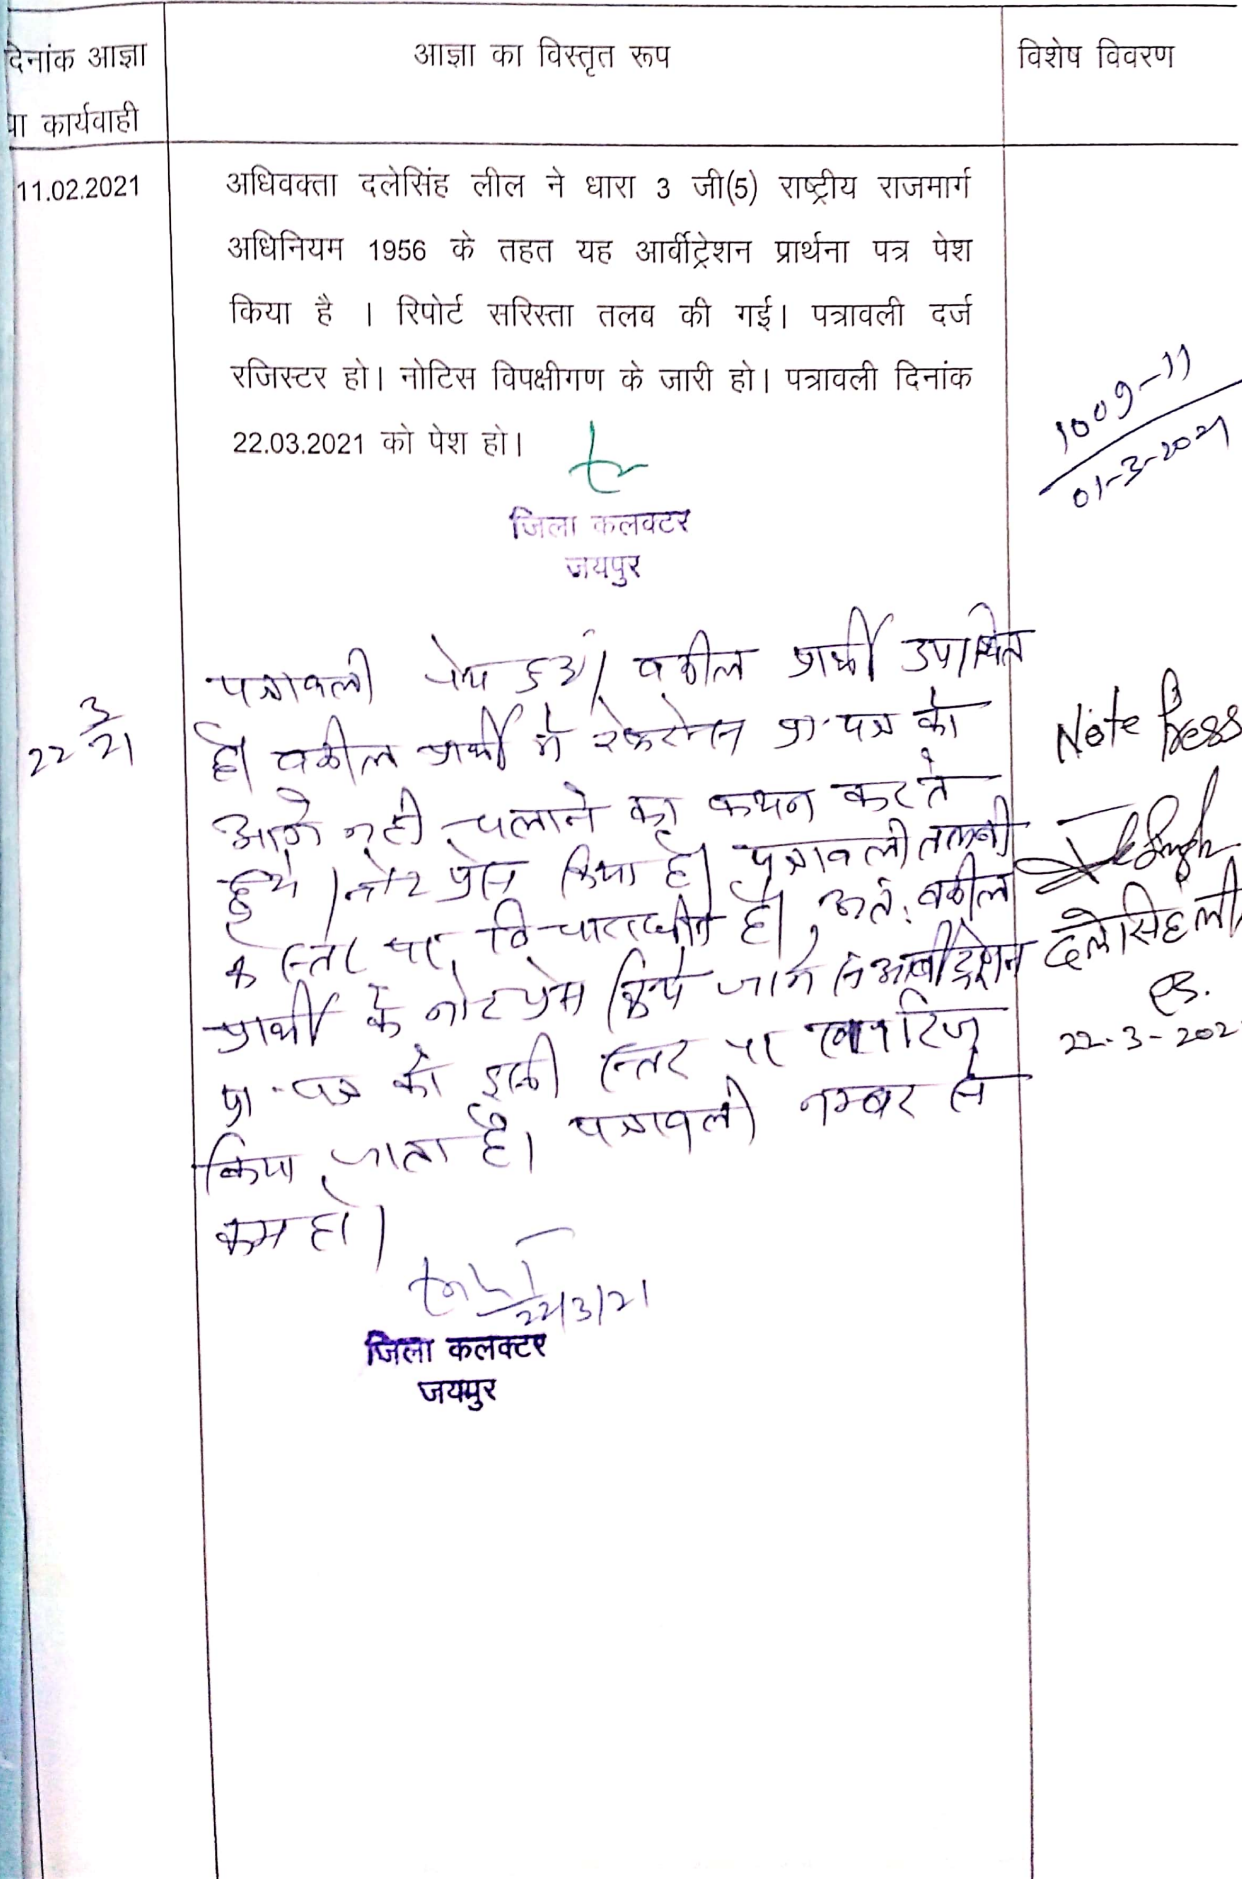 देनांक आज्ञा
या कार्यवाही
आज्ञा का विस्तृत रूप
विशेष विवरण
11.02.2021
अधिवक्ता दलेसिंह लील ने धारा 3 जी(5) राष्ट्रीय राजमार्ग
अधिनियम 1956 के तहत यह आर्वीट्रेशन प्रार्थना पत्र पेश
किया है । रिपोर्ट सरिस्ता तलव की गई। पत्रावली दर्ज
रजिस्टर हो। नोटिस विपक्षीगण के जारी हो। पत्रावली दिनांक
22.03.2021 को पेश हो।
1009-11
01-3-2021
जिला कलक्टर
जयपुर
22 3/21
पत्रावली पेश हुई। वकील प्रार्थी उपस्थित
है। वकील प्रार्थी ने प्रा. पत्र को
आगे नही चलाने का कथन करते
हुये नोट प्रेस किया है। पत्रावली तलबी
के स्तर पर विचाराधीन है। अतः वकील
प्रार्थी के नोट प्रेस किये जाने से आर्बीट्रेशन
प्रा. पत्र को इसी स्तर पर खारिज
किया जाता है। पत्रावली नम्बर से
कम हो।
Note Press
दलेसिंह ली
22-3-202
22/3/21
जिला कलक्टर
जयपुर